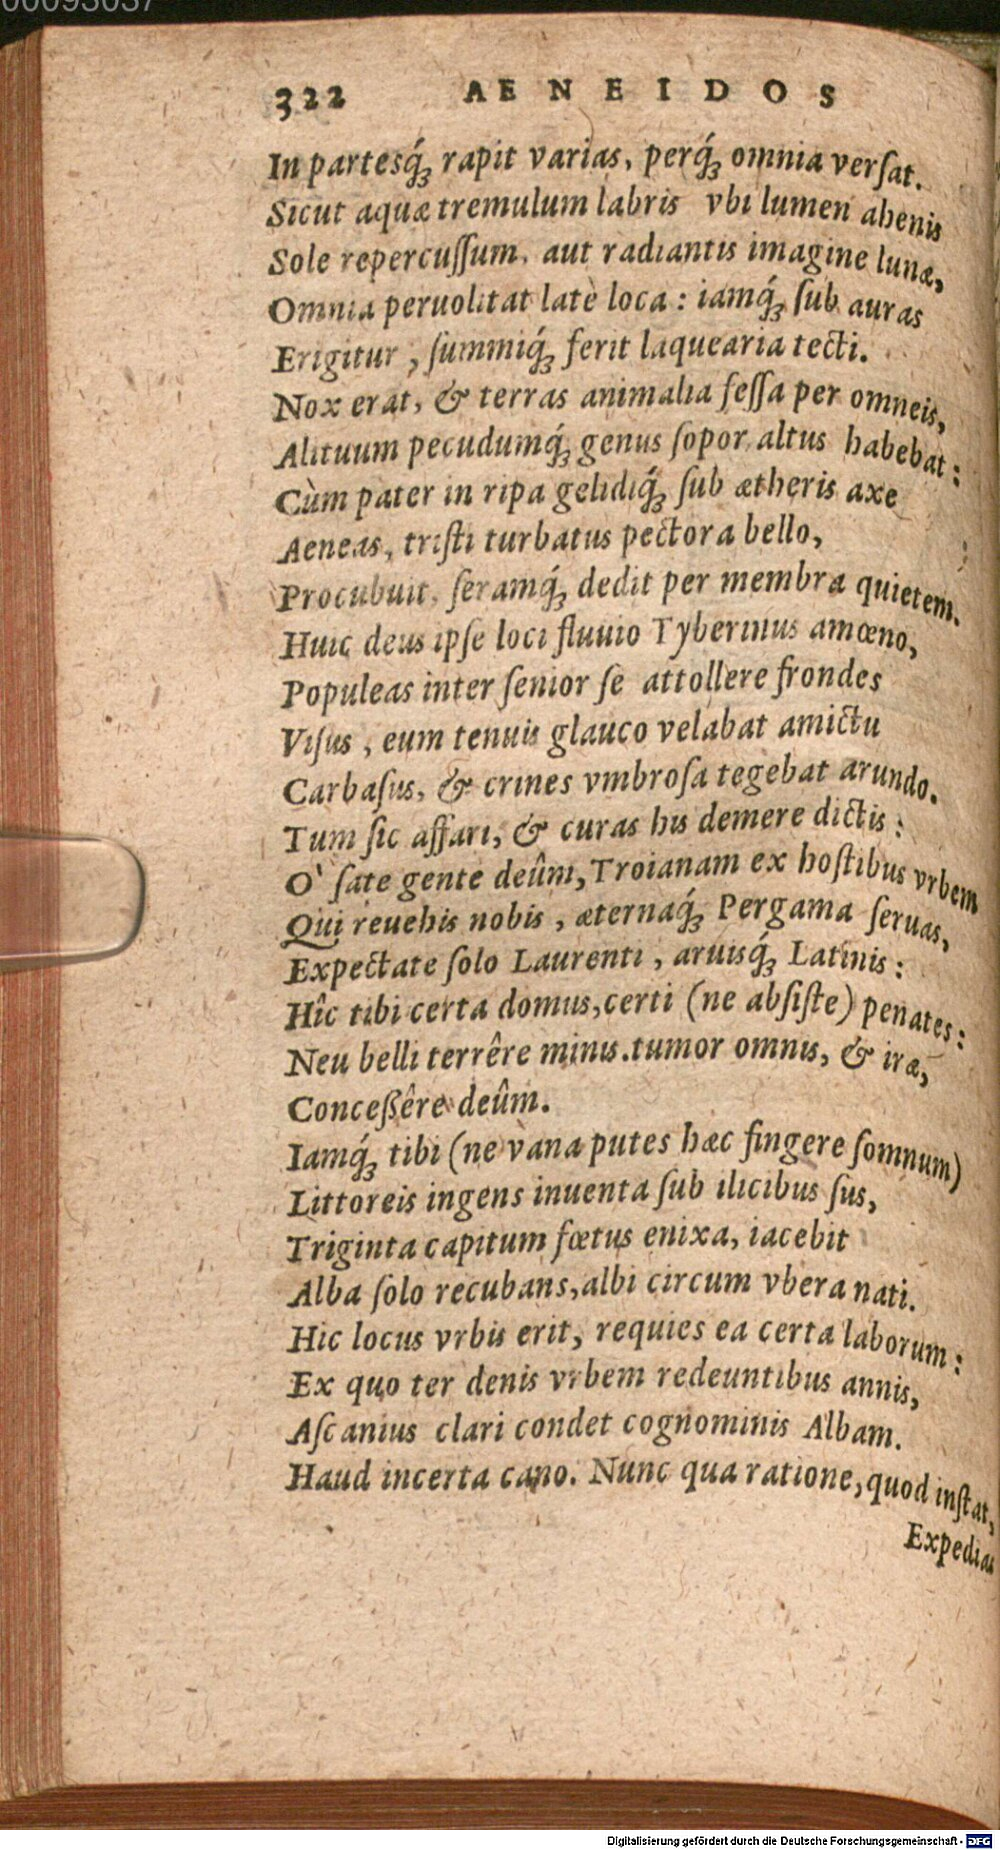 00093037
322 AENEIDOS
In partesq́ꝫ rapit varias, perq́ꝫ omnia verſat.
Sicut aquæ tremulum labris vbi lumen ahenis
Sole repercuſſum, aut radiantis imagine lunæ,
Omnia peruolitat latè loca: iamq́ꝫ ſub auras
Erigitur, ſummiq́ꝫ ferit laquearia tecti.
Nox erat, & terras animalia feſſa per omneis,
Alituum pecudumq́ꝫ genus ſopor altus habebat:
Cùm pater in ripa gelidiq́ꝫ ſub ætheris axe
Aeneas, triſti turbatus pectora bello,
Procubuit, ſeramq́ꝫ dedit per membra quietem.
Huic deus ipſe loci fluuio Tyberinus amœno,
Populeas inter ſenior ſe attollere frondes
Viſus, eum tenuis glauco velabat amictu
Carbaſus, & crines vmbroſa tegebat arundo.
Tum ſic affari, & curas his demere dictis:
O' ſate gente deûm, Troianam ex hoſtibus vrbem
Qui reuehis nobis, æternaq́ꝫ Pergama ſeruas,
Expectate ſolo Laurenti, aruisq́ꝫ Latinis:
Hîc tibi certa domus, certi (ne abſiſte) penates:
Neu belli terrêre minis. tumor omnis, & iræ,
Conceßêre deûm.
Iamq́ꝫ tibi (ne vana putes hæc fingere ſomnum)
Littoreis ingens inuenta ſub ilicibus ſus,
Triginta capitum fœtus enixa, iacebit
Alba ſolo recubans, albi circum vbera nati.
Hic locus vrbis erit, requies ea certa laborum:
Ex quo ter denis vrbem redeuntibus annis,
Aſcanius clari condet cognominis Albam.
Haud incerta cano. Nunc qua ratione, quod inſtat,
Expedias
Digitalisierung gefördert durch die Deutsche Forschungsgemeinschaft - DFG